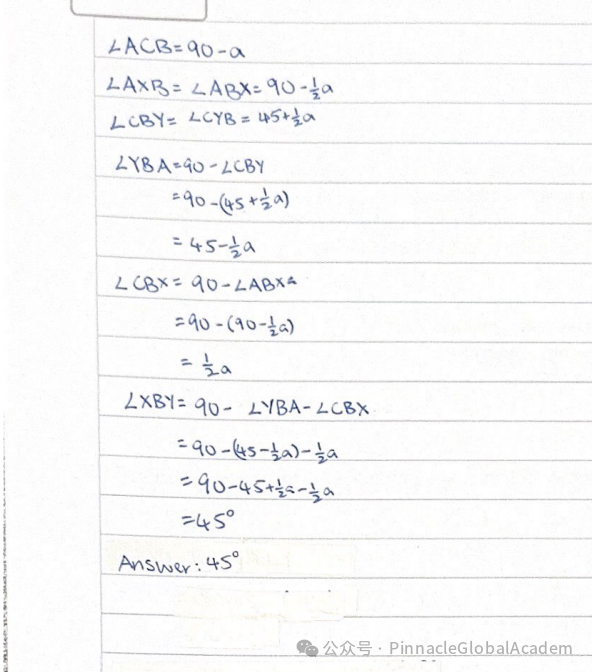 ∠ACB=90-a
∠AXB=∠ABX=90-½a
∠CBY=∠CYB=45+½a
∠YBA=90-∠CBY
=90-(45+½a)
=45-½a
∠CBX=90-∠ABX
=90-(90-½a)
=½a
∠XBY=90-∠YBA-∠CBX
=90-(45-½a)-½a
=90-45+½a-½a
=45°
Answer: 45°
公众号 · PinnacleGlobalAcadem